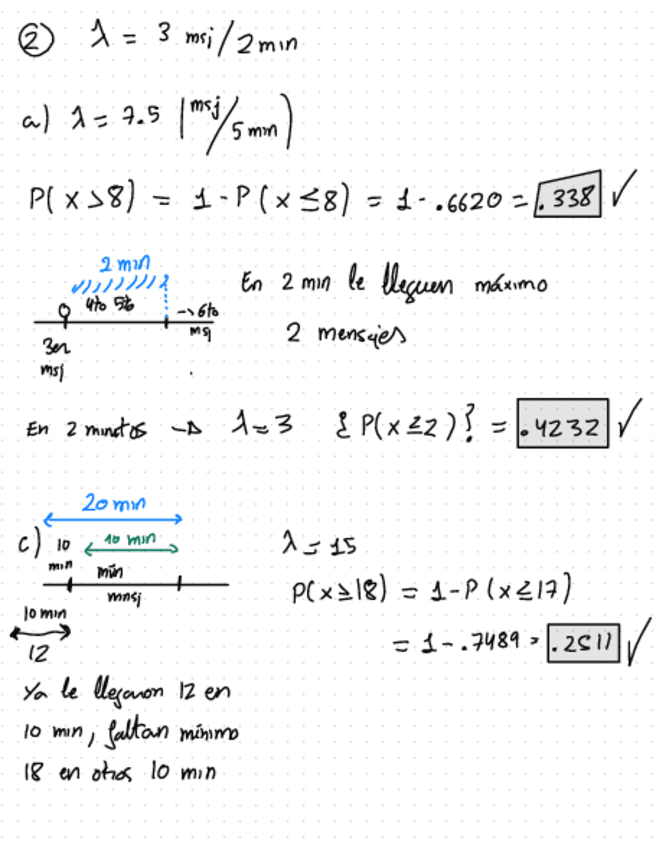 ② λ = 3 msj/2min
a) λ = 7.5 (msj/5 min)
P(x>8) = 1 - P(x≤8) = 1 - .6620 = .338 ✓
2 min
4to 5to
3er msj
→ 6to msj
En 2 min le lleguen máximo
2 mensajes
En 2 minutos → λ=3 {P(x≤2)} = .4232 ✓
20 min
c) 10 min
10 min
min
mnsj
10 min
12
λ = 15
P(x≥18) = 1-P(x≤17)
= 1-.7489 = .2511 ✓
Ya le llegaron 12 en
10 min, faltan mínimo
18 en otros 10 min